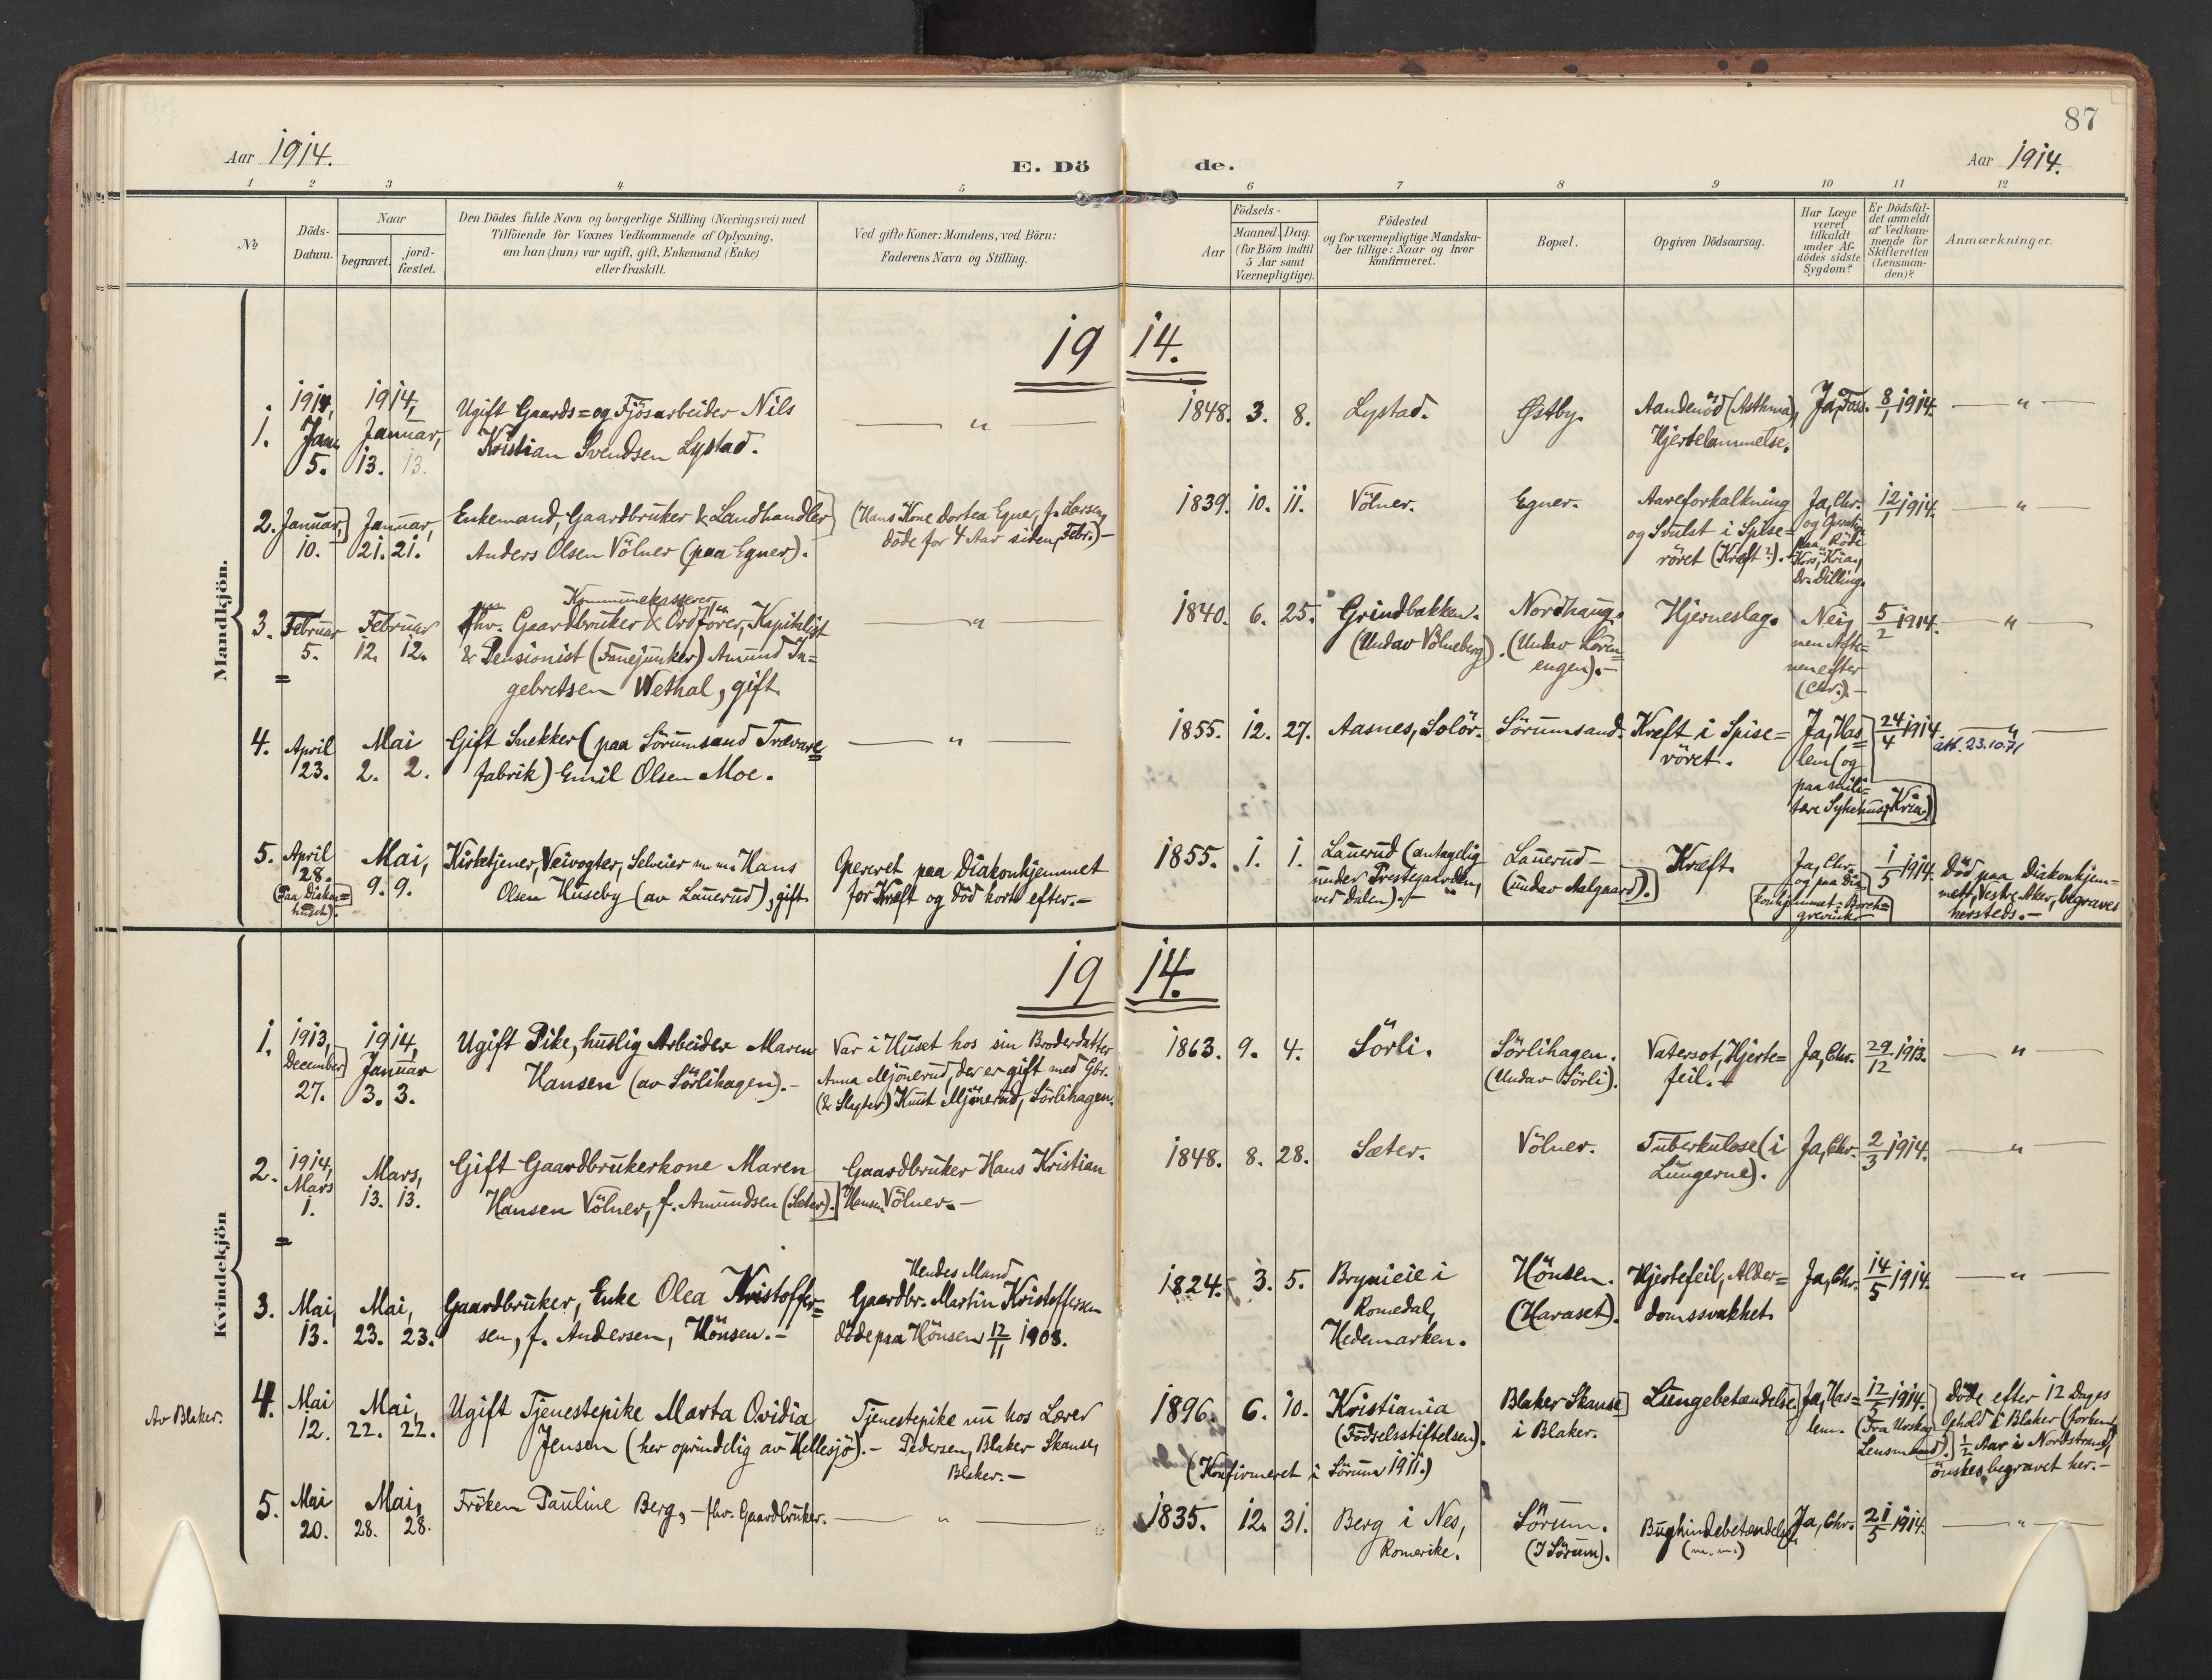 87
Aar 1914.
E. Dö de.
Aar 1914.
1 2 3 4 5 6 7 8 9 10 11 12
No
Döds-
Datum.
Naar
begravet.
jord-
fæstet.
Den Dödes fulde Navn og borgerlige Stilling (Næringsvei) med
Tilföiende for Voxnes Vedkommende af Oplysning,
om han (hun) var ugift, gift, Enkemand (Enke)
eller fraskilt.
Ved gifte Koner: Mandens, ved Börn:
Faderens Navn og Stilling.
Födsels-
Aar
Maaned. Dag.
(for Börn indtil
5 Aar samt
Værnepligtige).
Födested
og for værnepligtige Mandska-
ber tillige: Naar og hvor
konfirmeret.
Bopæl.
Opgiven Dödsaarsag.
Har Læge
været
tilkaldt
under Af-
dödes sidste
Sygdom?
Er Dödsfal-
det anmeldt
af Vedkom-
mende for
Skifteretten
(Lensman-
den)?
Anmærkninger.
Mandkjön.
1914.
1.
1914,
Jan.
5.
1914,
Januar,
13. 13.
Ugift Gaards= og Fjösarbeider Nils
Kristian Svendsen Lystad.
— " —
1848. 3. 8.
Lystad.
Østby.
Aandenöd (Asthma),
Hjertelammelse.
Ja, Foss.
8/1 1914.
— " —
2.
Januar,
10.
Januar,
21. 21.
Enkemand, Gaardbruker & Landhandler
Anders Olsen Völner (paa Egner).
(Hans Kone Dortea Egner, f. Larsen,
döde for 4 Aar siden, Febr.) —
1839. 10. 11.
Völner.
Egner.
Aareforkalkning
og Svulst i Spise=
röret (Kræft?).
Ja, Chr.
og
paa Röde
Kors, Kria,
Dr. Dilling.
12/1 1914.
— " —
3.
Februar
5.
Februar
12. 12.
Kommunekasserer,
fhv. Gaardbruker & Ordförer, Kapitalist
& Pensionist (Fanejunker) Amund In=
gebretsen Wethal, gift.
— " —
1840. 6. 25.
Grindbakken.
(Undav Völneberg).
Nordhaug.
(Undav Lören=
engen). —
Hjerneslag.
Nei,
men
efter
(Chr.). —
5/2 1914.
— " —
4.
April
23.
Mai
2. 2.
Gift Snekker (paa Sörumsand Trævare=
fabrik) Emil Olsen Moe.
— " —
1855. 12. 27.
Aasnes, Solör.
Sörumsand.
Kræft i Spise=
röret.
Ja, Has=
lem (og
paa mili=
tære Sykehus, Kria.)
24/4 1914.
— " —
att. 23.10.71
5.
April
28.
(Paa Diakon=
huset).
Mai,
9. 9.
Kirketjener, Veivogter, Selveier m.m. Hans
Olsen Huseby (av Lauerud), gift.
Opereret paa Diakonhjemmet
for Kræft og död kort efter. —
1855. 1. 1.
Lauerud (antagelig
under Prestegaarden,
ved Dalen). —
Lauerud —
(undav Aalgaard).
Kræft.
Ja, Chr.
og paa Dia=
konhjemmet: Borch=
grevink
1/5 1914.
Död paa Diakonhjem=
met, Vestre Aker, begraves
hersteds. —
Kvindekjön
1914.
1.
1913,
December
27.
1914,
Januar
3. 3.
Ugift Pike, huslig Arbeider Maren
Hansen (av Sörlihagen). —
Var i Huset hos sin Broderdatter
Anna Mjönerud, der er gift med Gbr.
(& Slagter) Knut Mjönerud, Sörlihagen.
1863. 9. 4.
Sörli.
Sörlihagen.
(Undav Sörli).
Vatersot, Hjerte=
feil. —
Ja, Chr.
29/12 1913.
— " —
2.
1914,
Mars
1.
Mars,
13. 13.
Gift Gaardbrukerkone Maren
Hansen Völner, f. Amundsen (Sæter).
Gaardbruker Hans Kristian
Hansen Völner. —
1848. 8. 28.
Sæter.
Völner.
Tuberkulose (i
Lungerne).
Ja, Chr.
2/3 1914.
— " —
3.
Mai,
13.
Mai,
23. 23.
Gaardbruker, Enke Olea Kristoffer=
sen, f. Andersen, Hönsen. —
Hendes Mand
Gaardbr. Martin Kristoffersen
döde paa Hönsen 12/11 1908.
1824. 3. 5.
Brynieie i
Romedal,
Hedemarken.
Hönsen.
(Haraset).
Hjertefeil, Alder=
domssvakhet.
Ja, Chr.
14/5 1914.
— " —
Av Blaker.
4.
Mai
12.
Mai,
22. 22.
Ugift Tjenestepike Marta Ovidia
Jensen (her oprindelig av Hellesjö). —
Tjenestepike nu hos Lærer
Pedersen, Blaker Skanse,
Blaker. —
1896. 6. 10.
Kristiania
(Födselsstiftelsen).
(Konfirmeret i Sörum 1911.)
Blaker Skanse
i Blaker.
Lungebetændelse
Ja, Has=
lem.
12/5 1914.
(Fra Urskog
Lensmand).
Döde efter 12 Dages
Ophold i Blaker (forhen
1/2 Aar i Nordstrand),
önskes begravet her. —
5.
Mai
20.
Mai,
28. 28.
Fröken Pauline Berg, — fhv. Gaardbruker.
— " —
1835. 12. 31.
Berg i Nes,
Romerike.
Sörum.
(I Sörum).
Bughindebetændelse
(m.m.)
Ja, Chr.
21/5 1914.
— " —